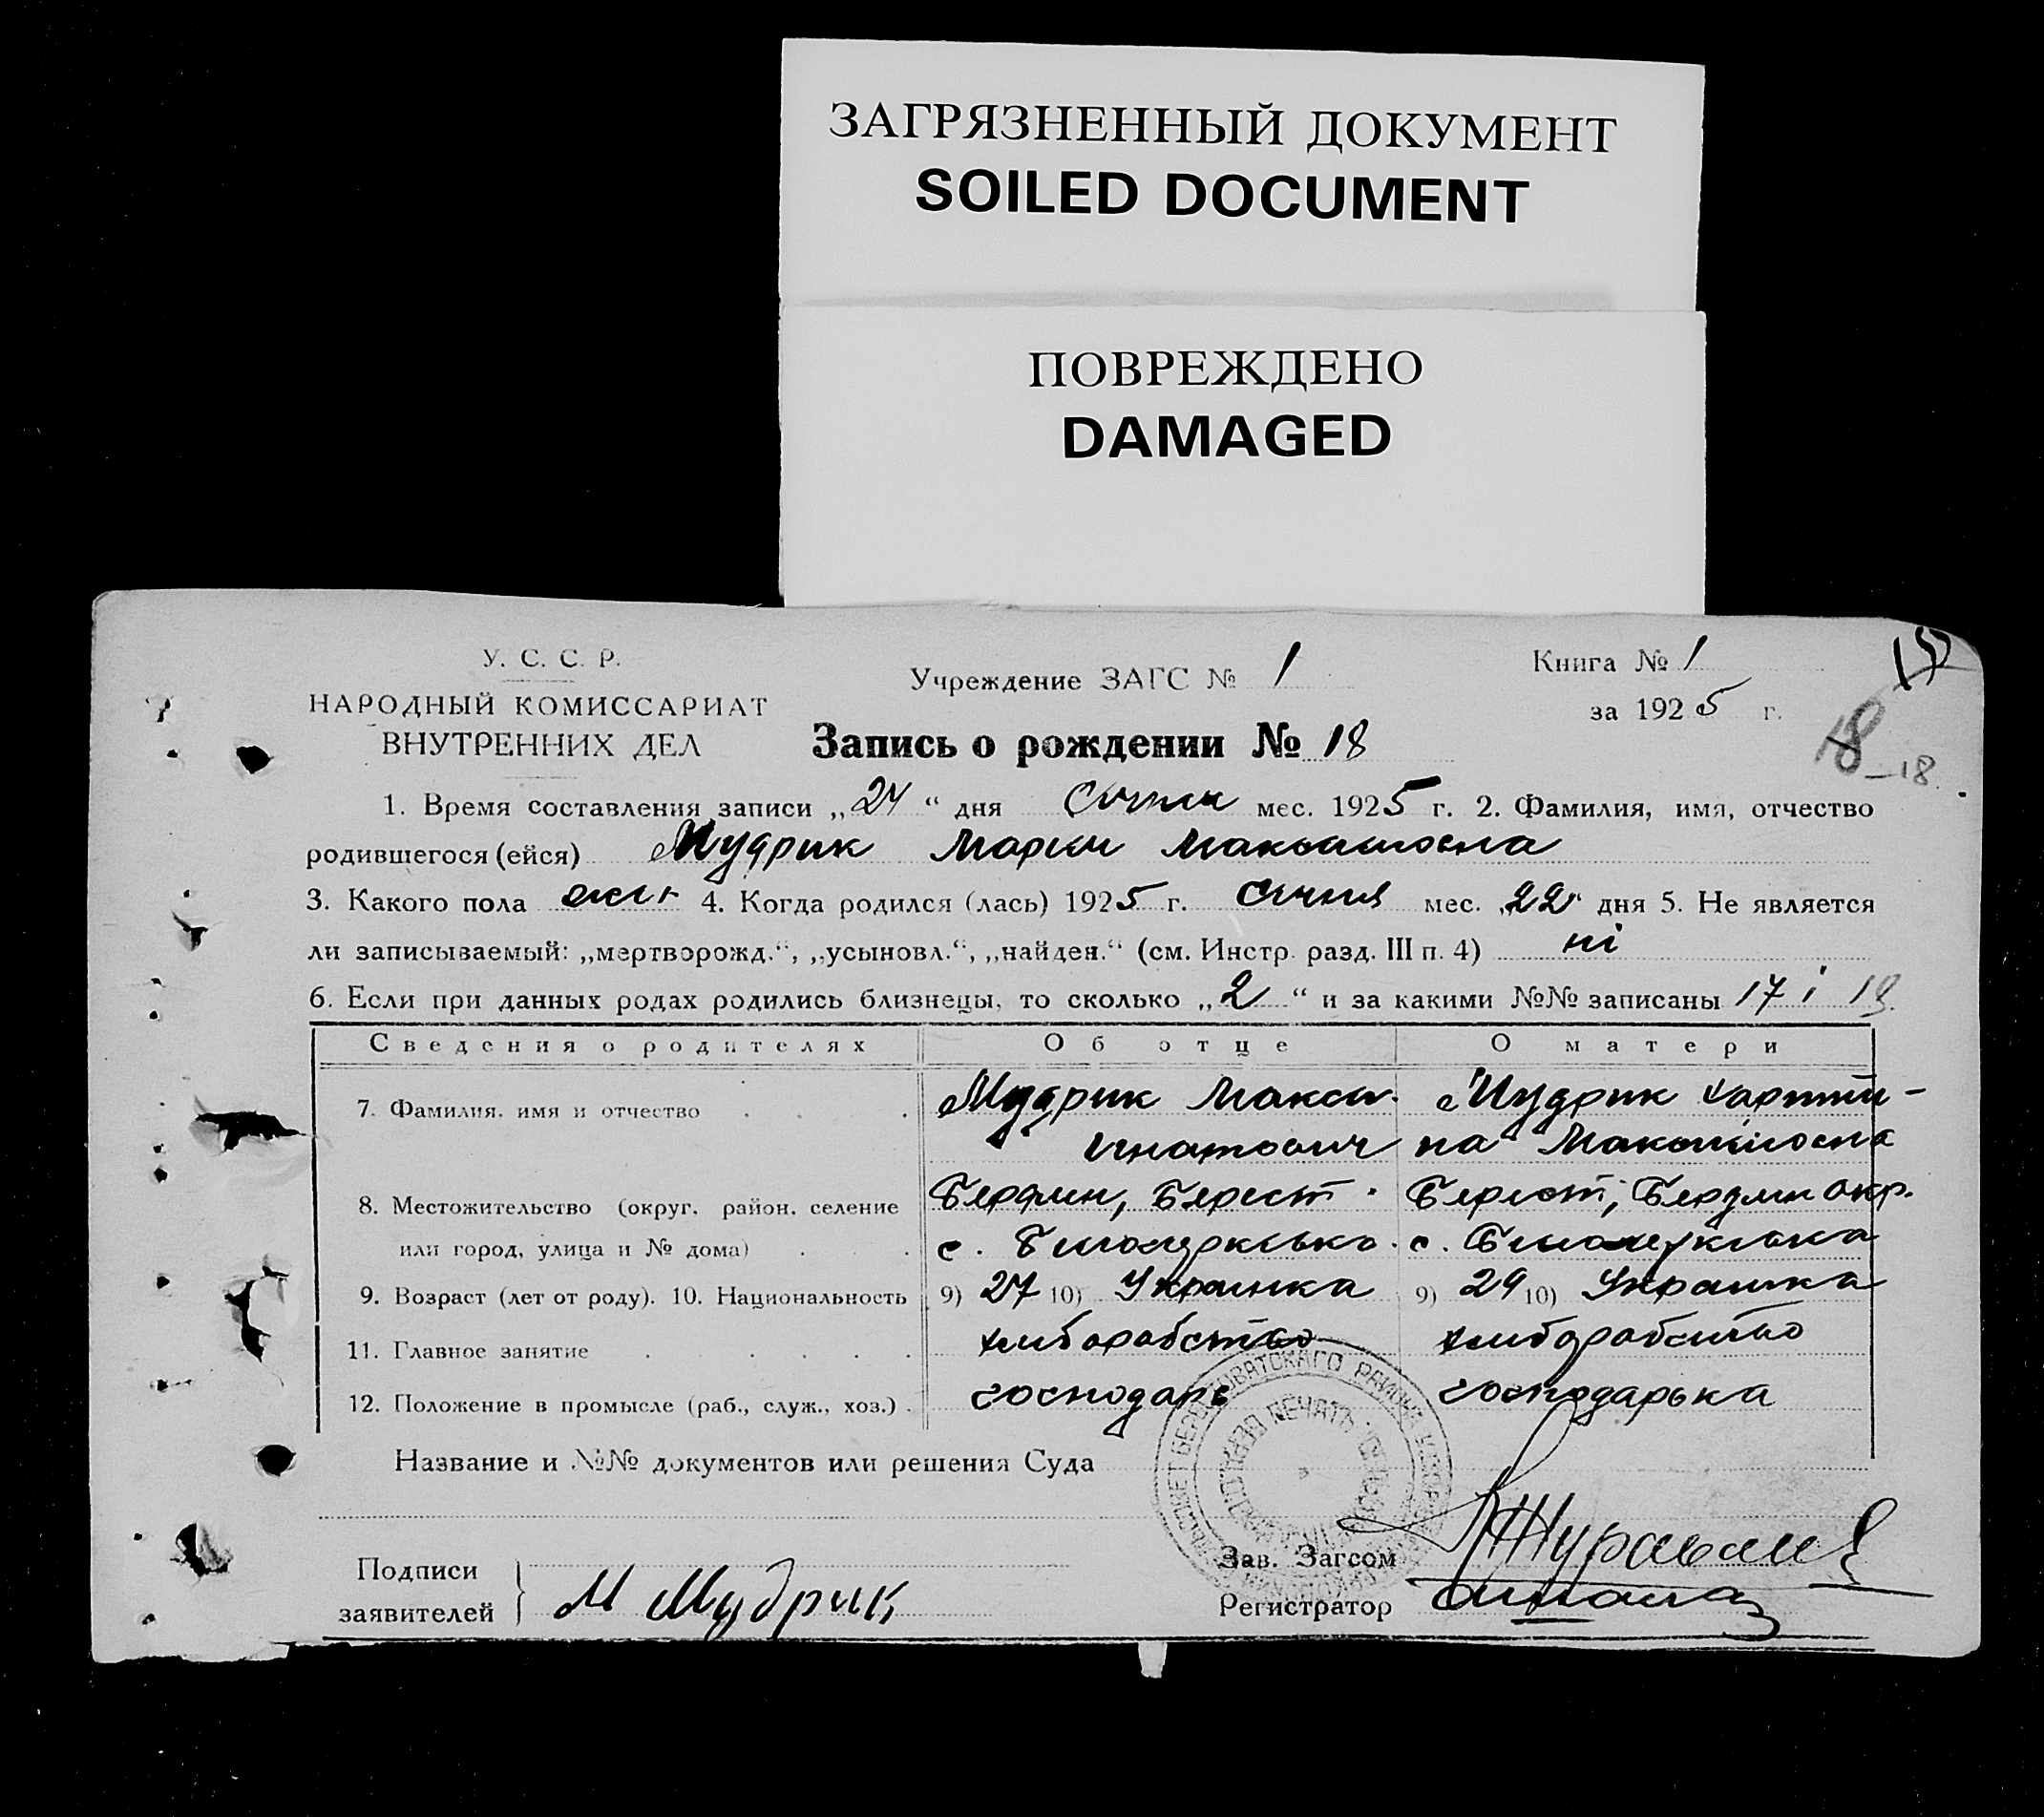 ЗАГРЯЗНЕННЫЙ ДОКУМЕНТ
SOILED DOCUMENT
ПОВРЕЖДЕНО
DAMAGED
У. С. С. Р.
НАРОДНЫЙ КОМИССАРИАТ
ВНУТРЕННИХ ДЕЛ
Учреждение ЗАГС № 1
Книга № 1
за 1925 г.
18
18
Запись о рождении № 18
1. Время составления записи „24“ дня Січня мес. 1925 г. 2. Фамилия, имя, отчество
родившегося (ейся) Мудрик Мария Максимовна
3. Какого пола жін 4. Когда родился (лась) 1925 г. Січня мес. „22“ дня 5. Не является
ли записываемый: „мертворожд.“, „усыновл.“, „найден.“ (см. Инстр. разд. III п. 4) ні
6. Если при данных родах родились близнецы, то сколько „2“ и за какими №№ записаны 17 і 18.
Сведения о родителях Об отце О матери
7. Фамилия, имя и отчество Мудрик Макси. Мудрик Харити-
Игнатович на
8. Местожительство (округ, район, селение Бердян, Берест. Берест, Бердян окр.
или город, улица и № дома) с. с.
9. Возраст (лет от роду). 10. Национальность 9) 27 10) Украинка 9) 29 10) Украинка
11. Главное занятие хлиборобство хлиборобство
12. Положение в промысле (раб., служ., хоз.) господарь господарька
Название и №№ документов или решения Суда
ПЕЧАТЬ
Подписи
заявителей } М Мудрик
Зав. Загсом
Регистратор